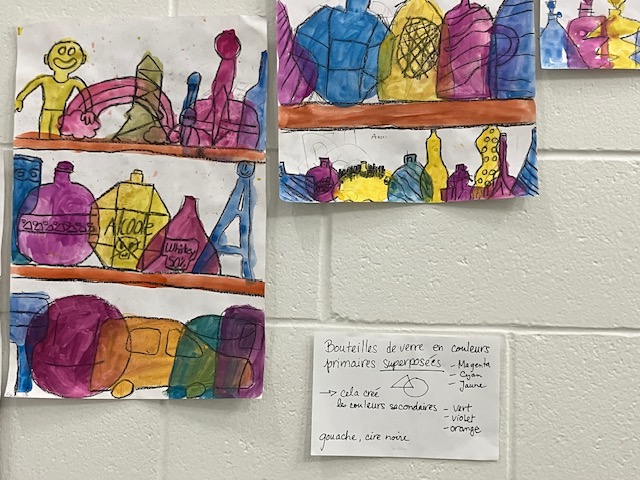 Alcool
Whisky
Bouteilles de verre en couleurs
primaires superposées
- Magenta
- Cyan
- Jaune
→ cela créé
les couleurs secondaires
- vert
- violet
- orange
gouache, cire noire